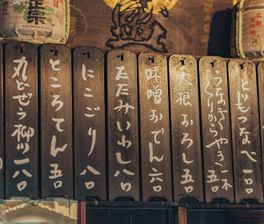 どぜうなべ
うなぎ
くりからやき一本
五〇
大根おろし五〇
味噌おでん六〇
たたみいわし八〇
にこごり八〇
ところてん五〇
丸どぜう柳川一八〇